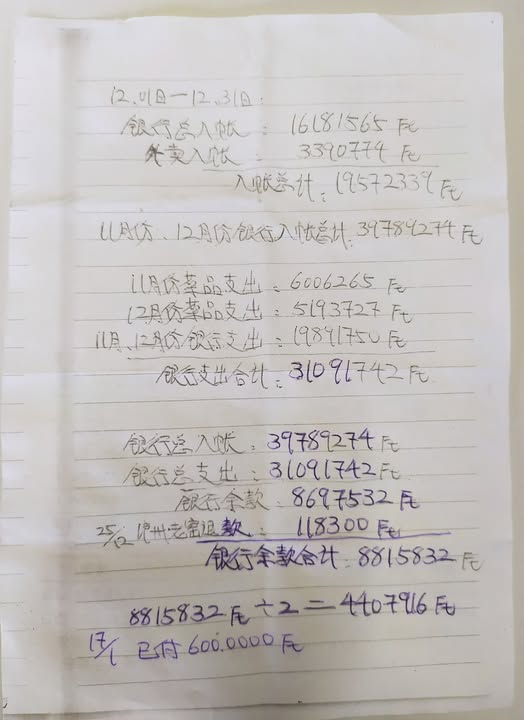 12.01日—12.31日:
银行总入帐: 16181565 Ft
外卖入帐: 3390774 Ft
入帐总计: 19572339 Ft
11月份、12月份银行入帐总计: 39789274 Ft
11月份药品支出: 6006265 Ft
12月份药品支出: 5193727 Ft
11月、12月份银行支出: 19891750 Ft
银行支出合计: 31091742 Ft
银行总入帐: 39789274 Ft
银行总支出: 31091742 Ft
银行余款: 8697532 Ft
25/12 退款: 118300 Ft
银行余款合计: 8815832 Ft
8815832 Ft ÷2= 4407916 Ft
17/1 已付 600.0000 Ft